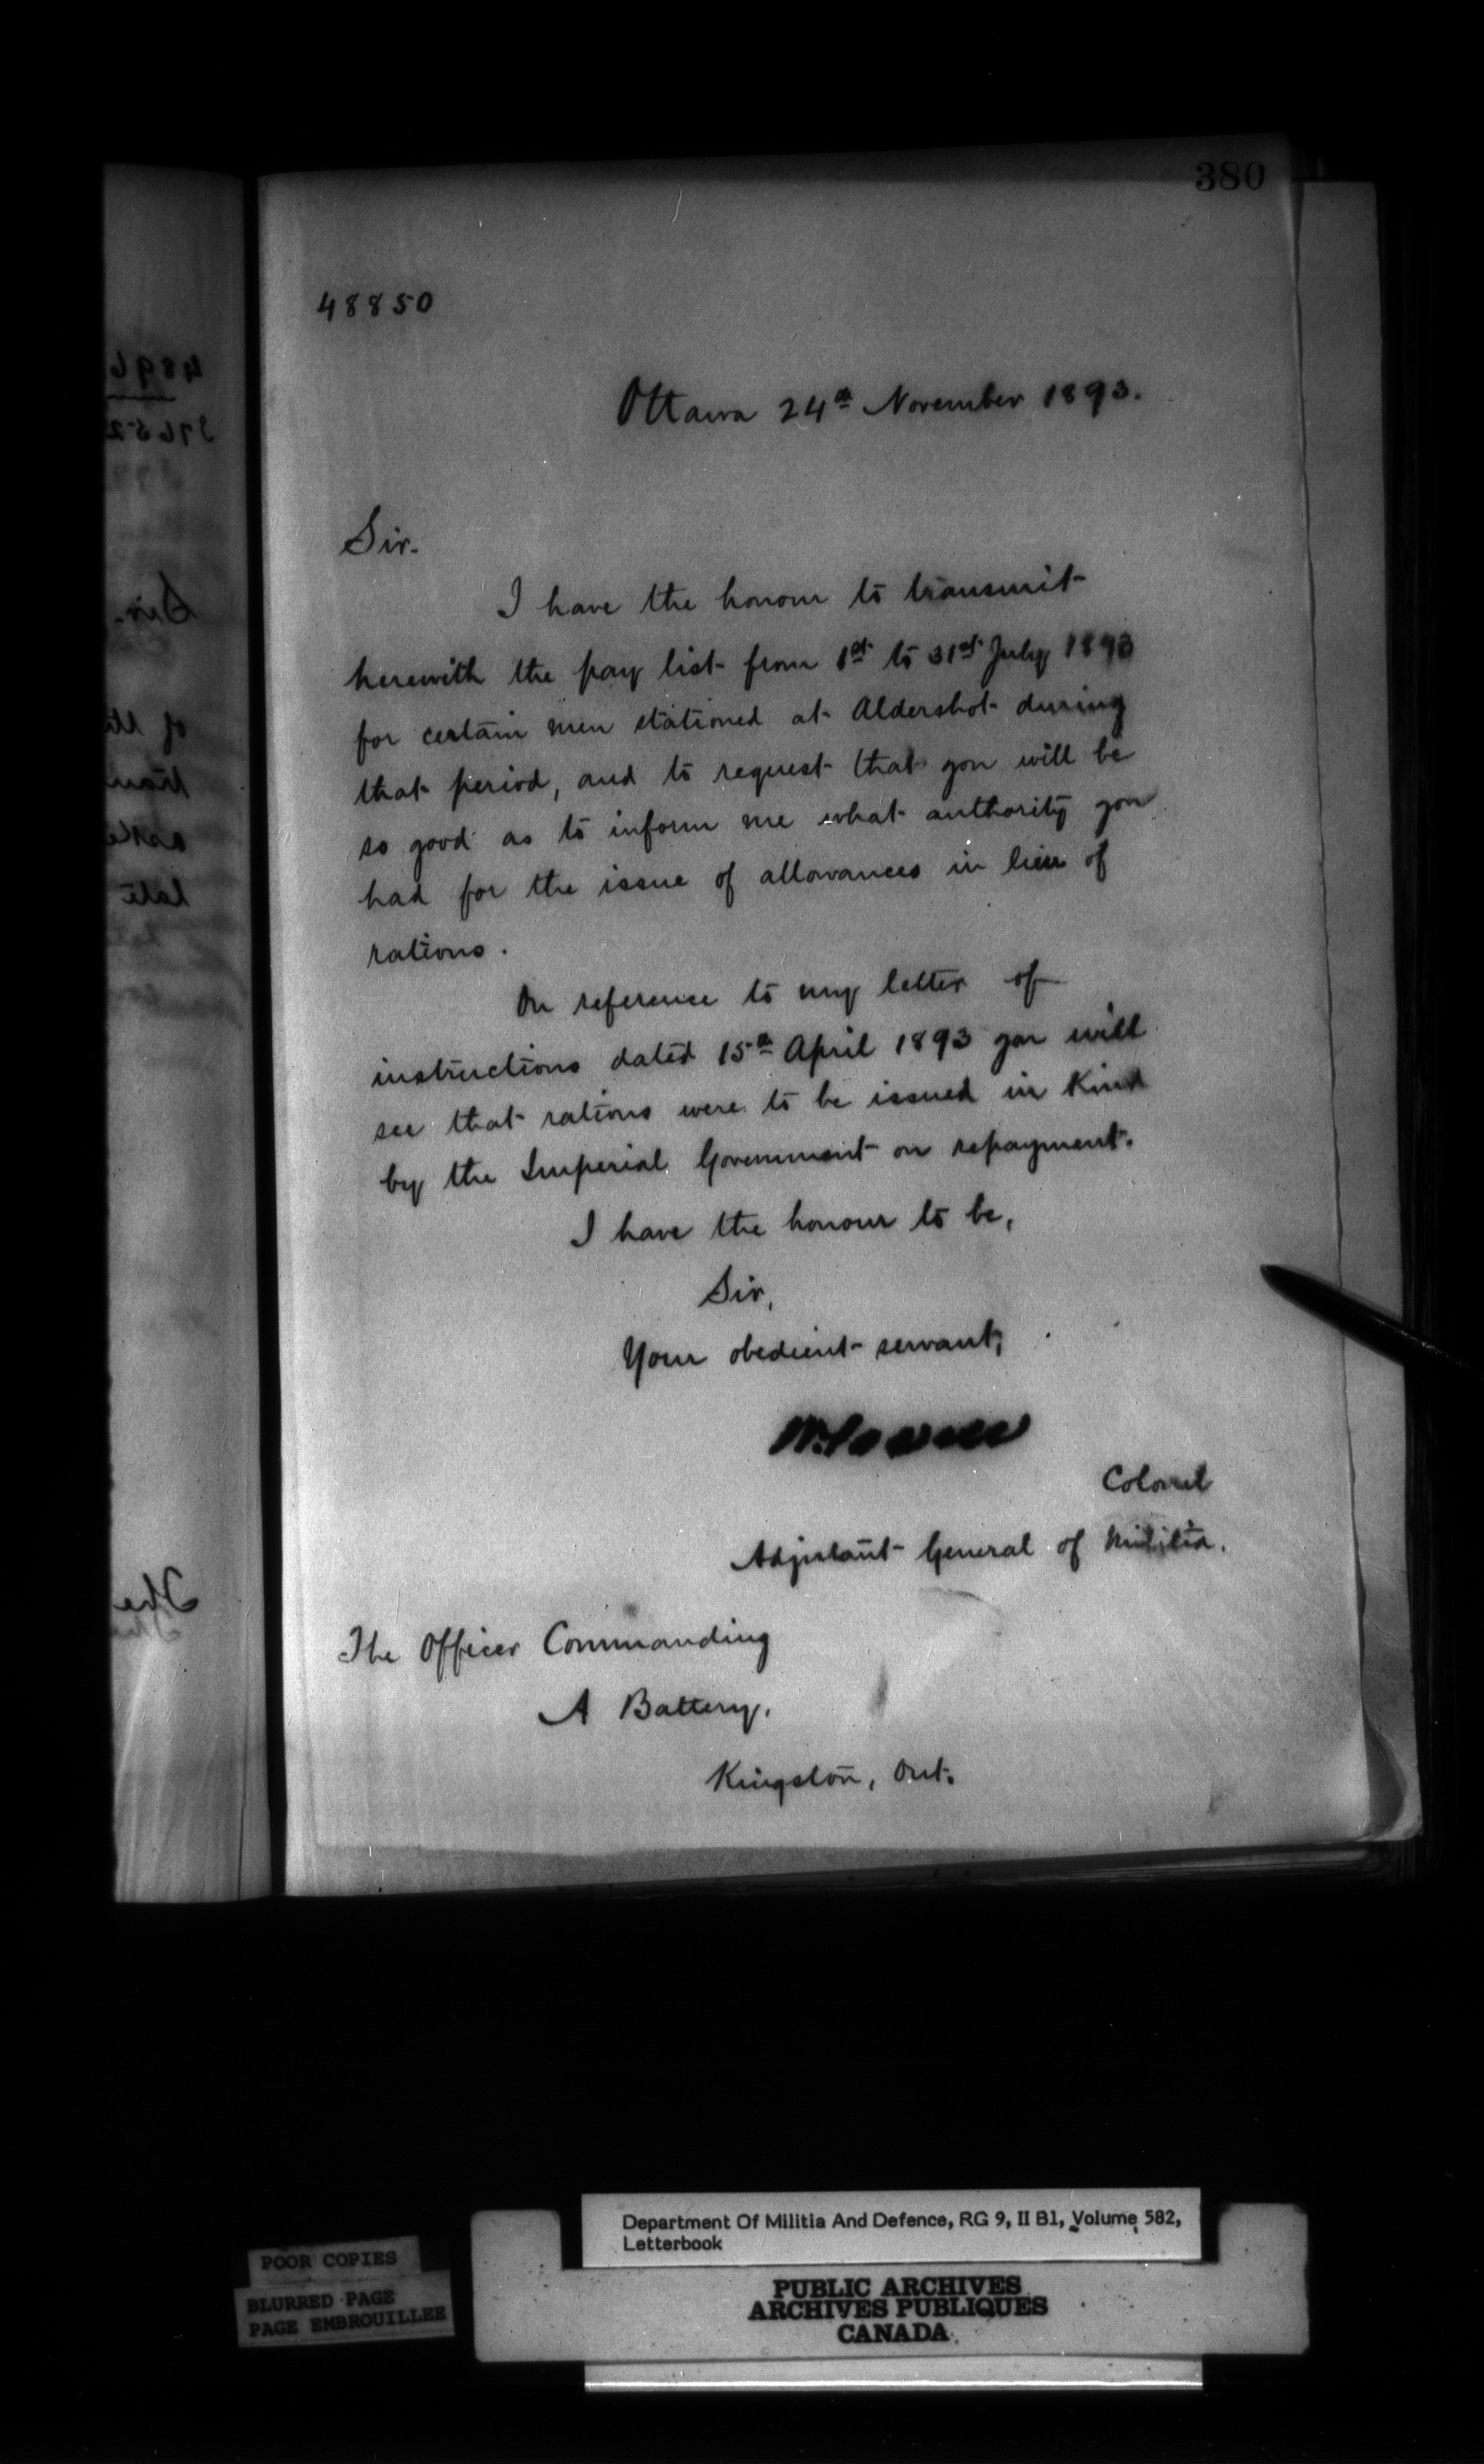 380
48850
Ottawa 24th November 1893.
Sir.
I have the honour to transmit
herewith the pay list from 1st to 31st July 1893
for certain men stationed at Aldershot during
that period, and to request that you will be
so good as to inform me what authority you
had for the issue of allowances in lieu of
rations.
On reference to my letter of
instructions dated 15th April 1893 you will
see that rations were to be issued in kind
by the Imperial Government on repayment.
I have the honour to be,
Sir,
Your obedient servant,
Colonel
Adjutant General of Militia.
The Officer Commanding
A Battery,
Kingston, Ont.
Department Of Militia And Defence, RG 9, II B1, Volume 582,
Letterbook
POOR COPIES
BLURRED PAGE
PAGE EMBROUILLEE
PUBLIC ARCHIVES
ARCHIVES PUBLIQUES
CANADA